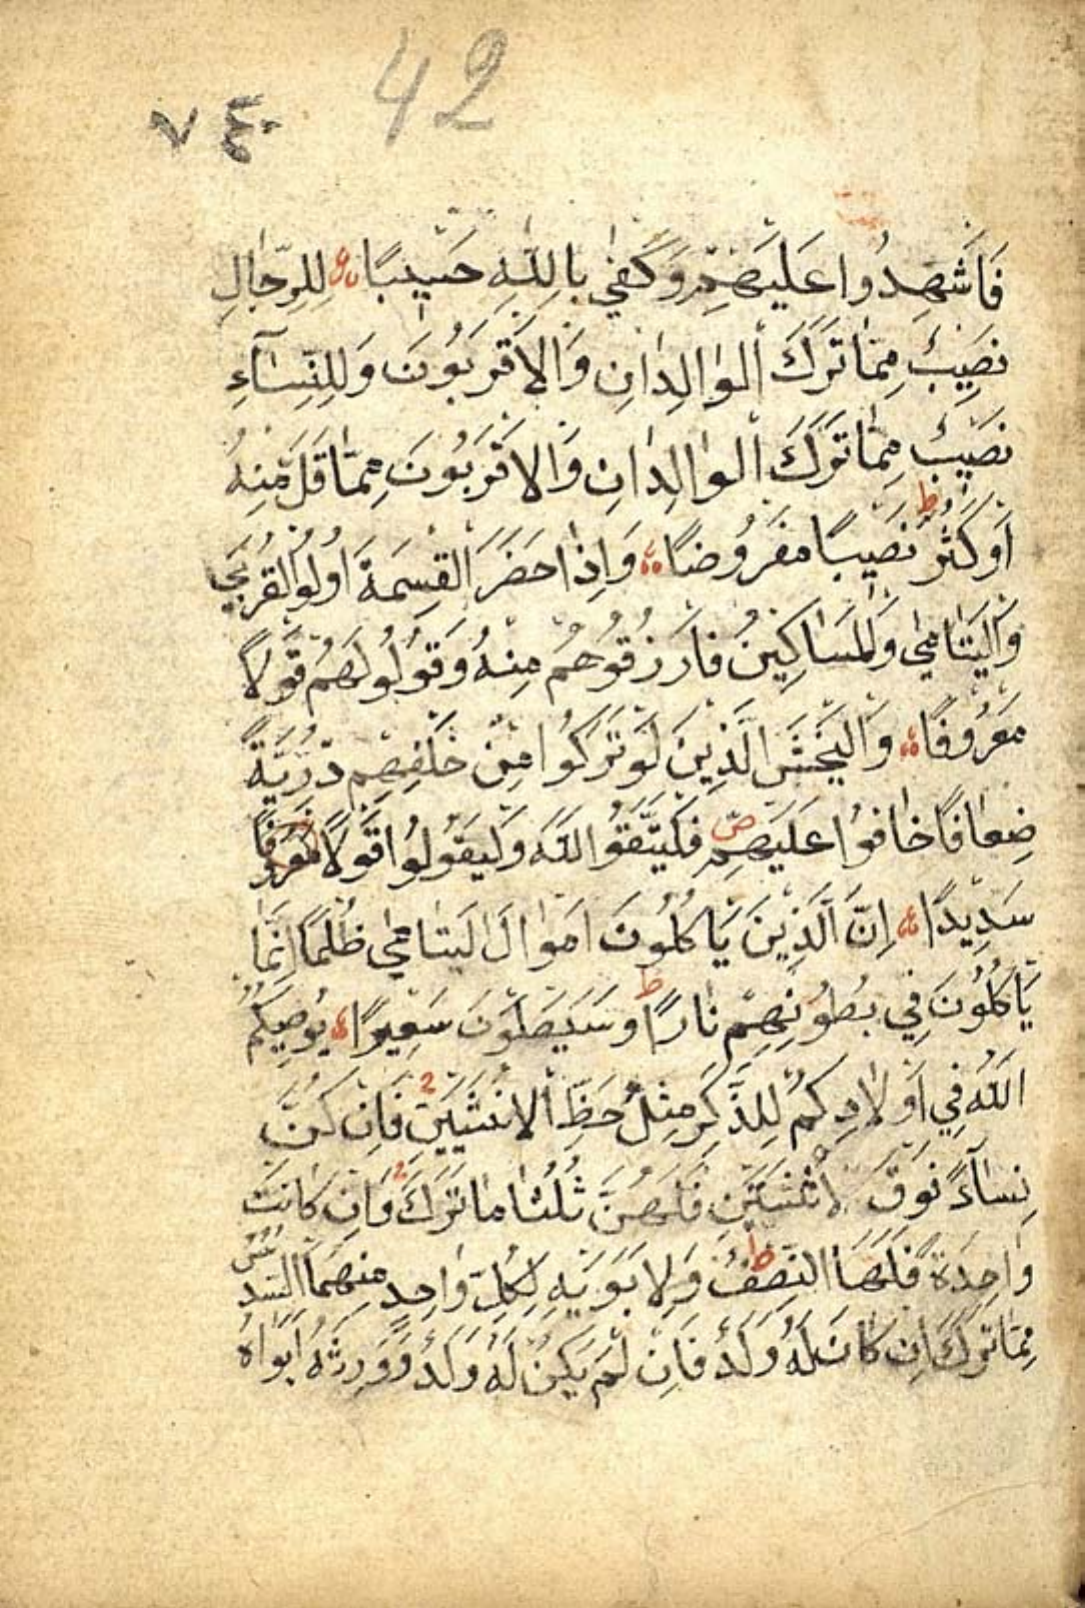 42
٧٤٠
فَاَشْهِدُوا عَلَيْهِمْ وَكَفٰى بِاللّٰهِ حَسٖيبًا لِلرِّجَالِ
نَصٖيبٌ مِمَّا تَرَكَ الْوالِدَانِ وَالْاَقْرَبُونَ وَلِلنِّسَآءِ
نَصٖيبٌ مِمَّا تَرَكَ الْوالِدَانِ وَالْاَقْرَبُونَ مِمَّا قَلَّ مِنْهُ
اَوْ كَثُرَ ط نَصٖيبًا مَفْرُوضًا وَاِذَا حَضَرَ الْقِسْمَةَ اُولُوا الْقُرْبٰى
وَالْيَتَامٰى وَلْمَسَاكٖينُ فَارْزُقُوهُمْ مِنْهُ وَقُولُو لَهُمْ قَوْلًا
مَعْرُوفًا وَالْيَخْشَ الَّذٖينَ لَوْ تَرَكُوا مِنْ خَلْفِهِمْ ذُرِّيَّةً
ضِعَافًا خَافُوا عَلَيْهِمْ ص فَلْيَتَّقُوا اللّٰهَ وَلْيَقُولُوا قَوْلًا مَعْرُوفًا
سَدٖيدًا اِنَّ الَّذٖينَ يَاْكُلُونَ اَمْوَالَ الْيَتَامٰى ظُلْمًا اِنَّمَا
يَاْكُلُونَ فٖي بُطُونِهِمْ نَارًا ط وَسَيَصْلَوْنَ سَعٖيرًا يُوصٖيكُمُ
اللّٰهُ فٖي اَوْلَادِكُمْ لِلذَّكَرِ مِثْلُ حَظِّ الْاُنْثَيَيْنِ فَاِنْ كُنَّ
نِسَآءً فَوْقَ اثْنَتَيْنِ فَلَهُنَّ ثُلُثَا مَا تَرَكَ وَاِنْ كَانَتْ
وَاحِدَةً فَلَهَا النِّصْفُ ط وَلِاَبَوَيْهِ لِكُلِّ وَاحِدٍ مِنْهُمَا السُّدُسُ
مِمَّا تَرَكَ اِنْ كَانَ لَهُ وَلَدٌ فَاِنْ لَمْ يَكُنْ لَهُ وَلَدٌ وَوَرِثَهُ اَبَوَاهُ